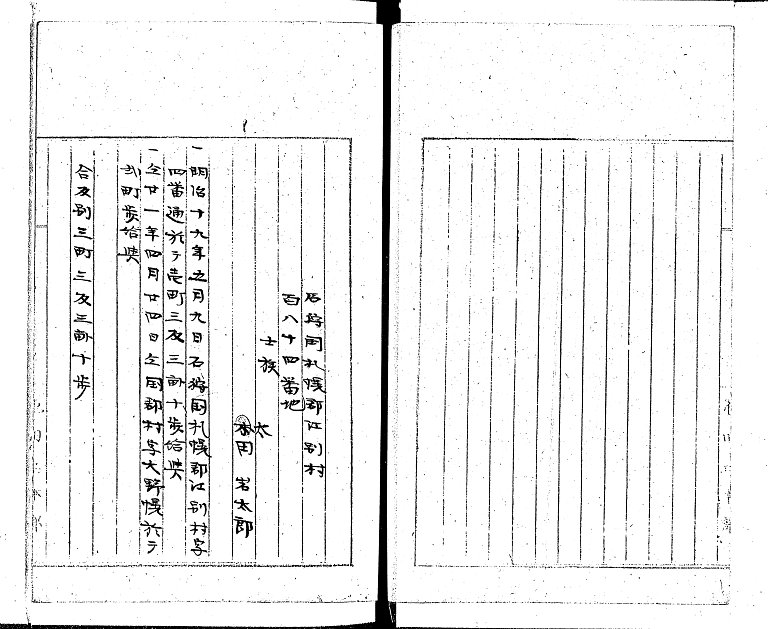 石狩国札幌郡江別村
百八十四番地
士族
太
本田 岩太郎
一明治十九年五月九日石狩国札幌郡江別村字
四番通於テ壱町三反三畝十歩給与
一仝廿一年四月廿四日仝国郡村字大野幌於テ
弐町歩給与
合反別三町三反三畝十歩